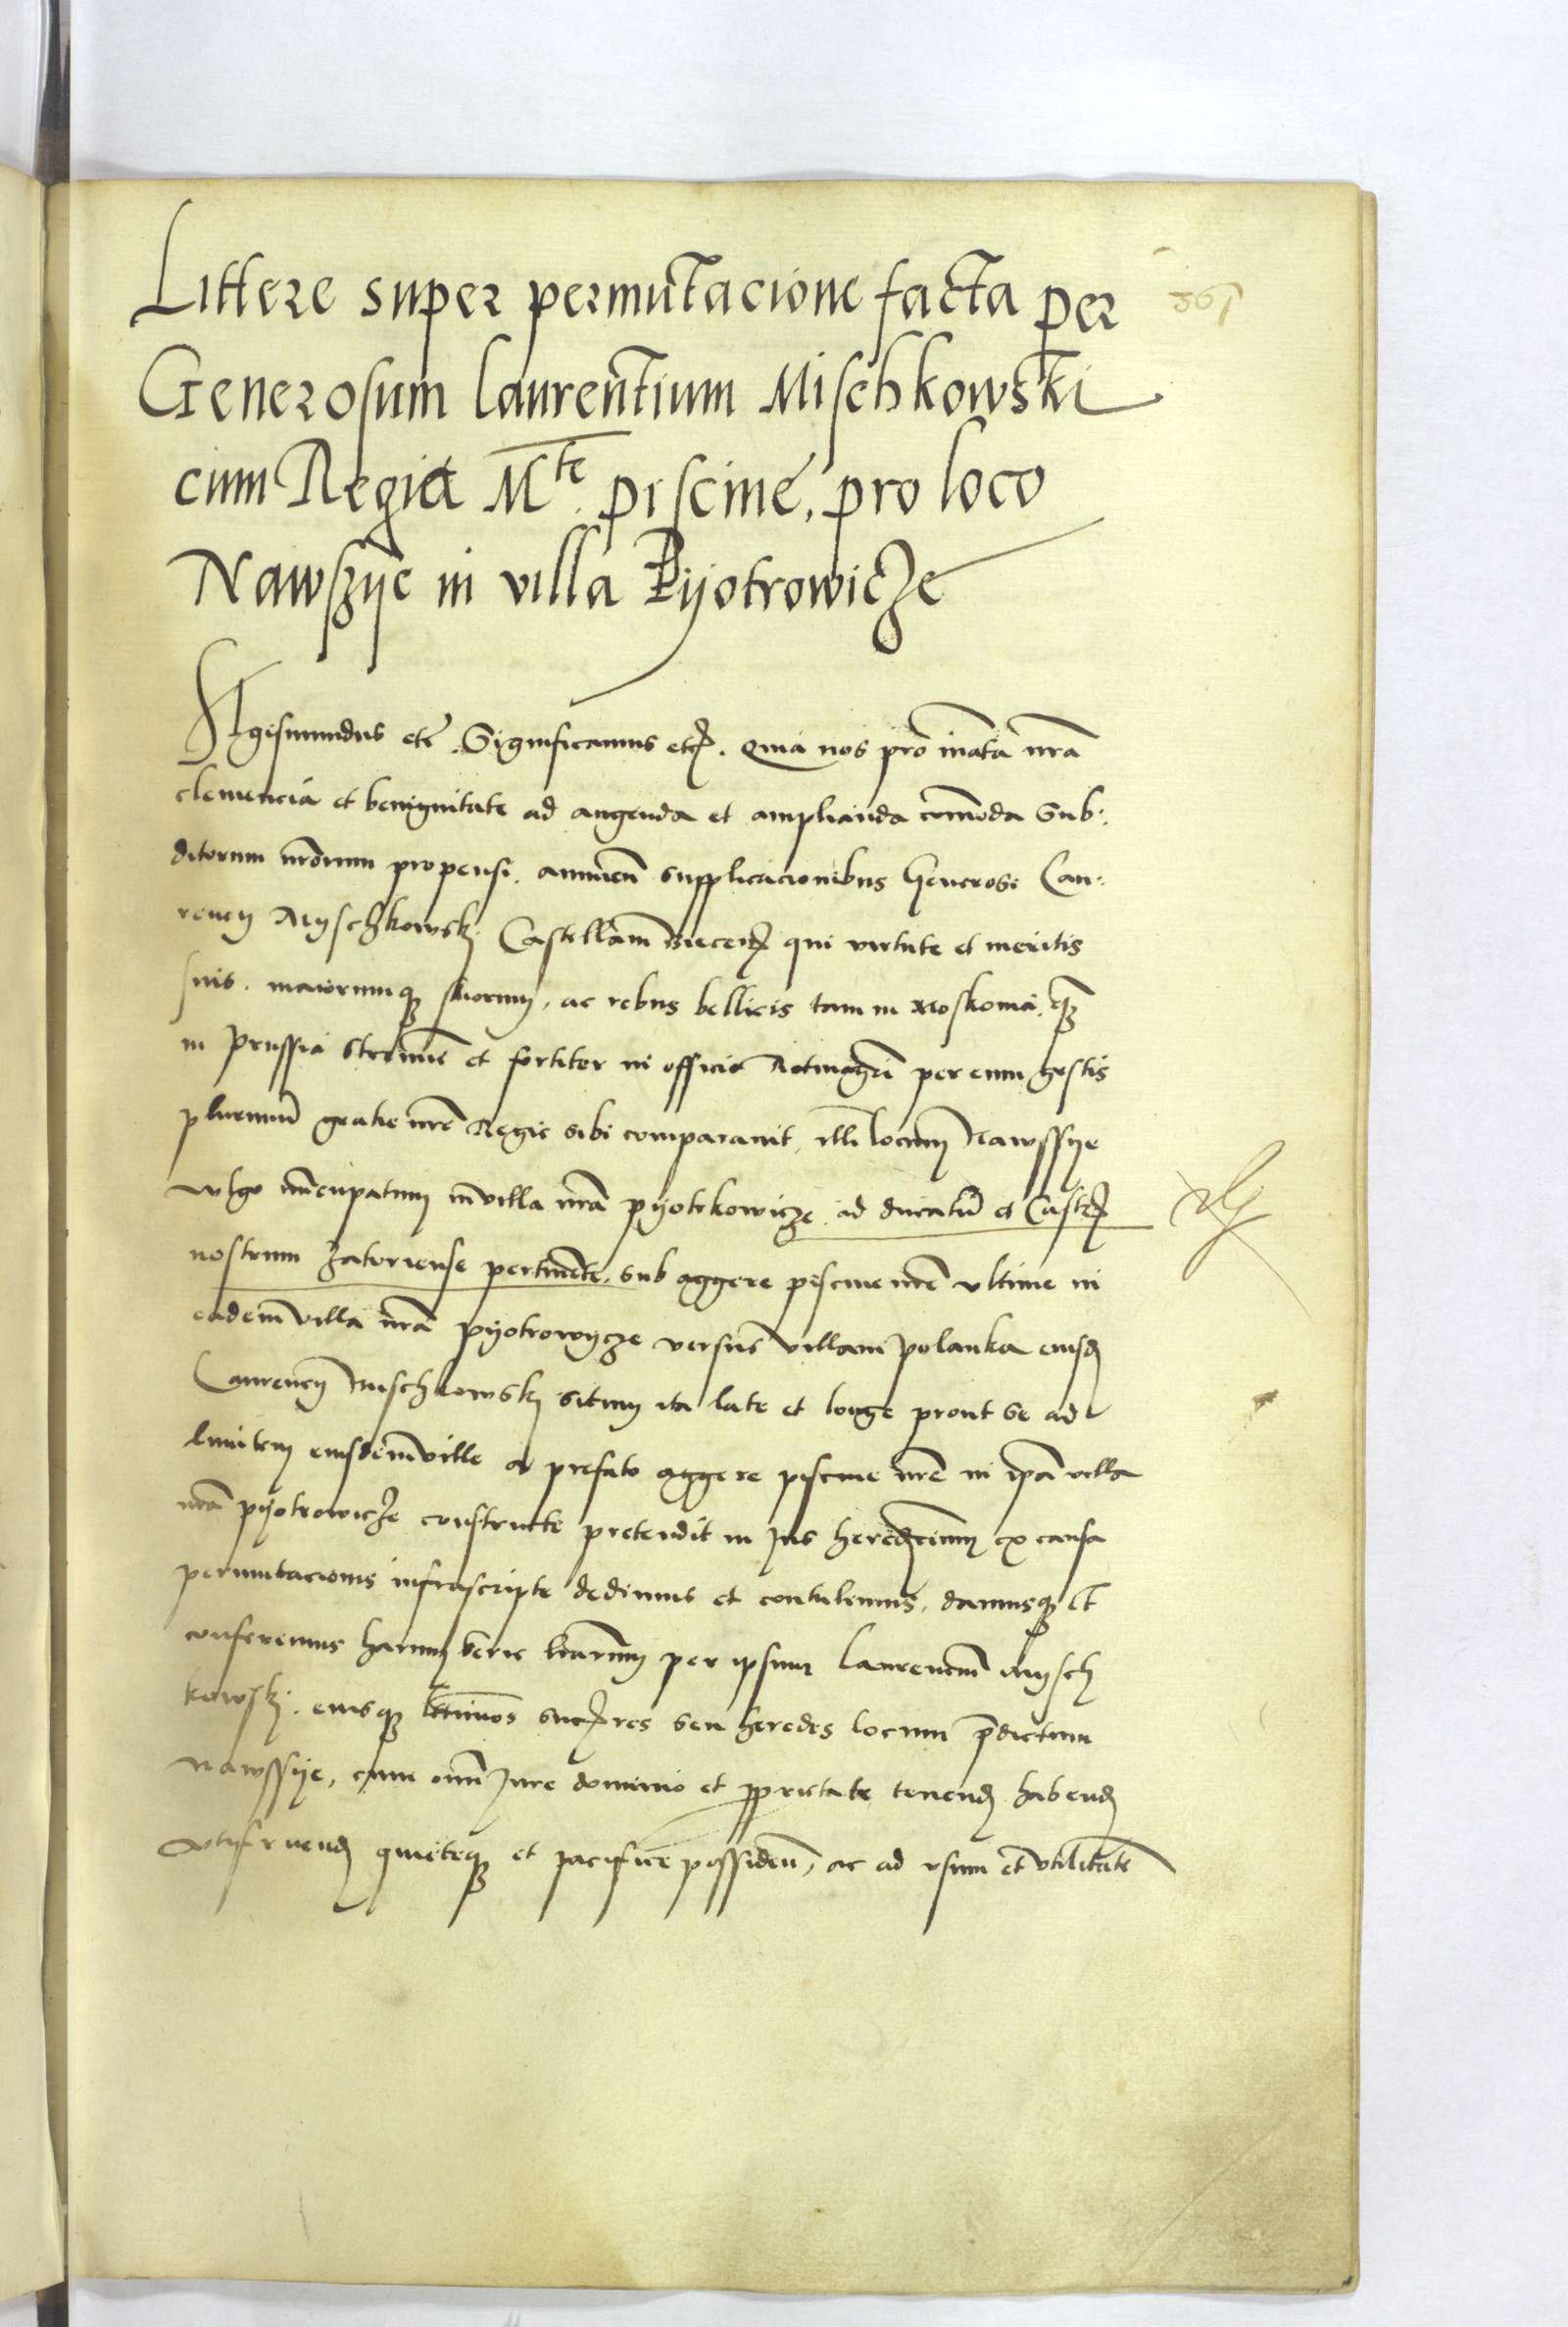 361
Littere super permutacione facta per
Generosum Laurentium Mischkowski
cum Regia Mte piscine, pro loco
Nawszije in villa Pijotrowicze
Sigismundus etc. Significamus etc. Quia nos pro innata nra
clemencia et benignitate ad augenda et amplianda comoda Sub:
ditorum nrorum propensi. annuen supplicacionibus Generosi Lau:
rencij Mijschkowskj Castellani Biecen qui virtute et meritis
suis. maiorumqz suorum, ac rebus bellicis tam in Moskouia. qz
in Prussia strenue et fortiter in officio Rotmagri per eum gestis
plurimum gratie nre Regie sibi comparauit, illi locum Nawssije
wlgo nuncupatum in villa nra Pijotrkowicze ad ducatu et Castr
nostrum Zatoriense pertinente, sub aggere piscine nre vltime in
eadem villa nra Pijotrowijcze versus villam Polanka eiusd
Laurencij Mischkowskj situm ita late et longe prout se ad
limitem eiusdem ville a prefato aggere piscine nre in ipa villa
nra Pijotrowicze constructe pretendit in Jus hereditarium ex causa
permutacionis infrascripte dedimus et contulimus, damusqz et
conferimus harum serie lrarum per ipsum Laurencium Mijsch
kowskj. eiusqz ltimos succres seu heredes locum pdictum
Nawssije, cum omi Jure dominio et pprietate tenend habend
vtifruend quieteqz et pacifice possiden, ac ad vsum et vtilitate